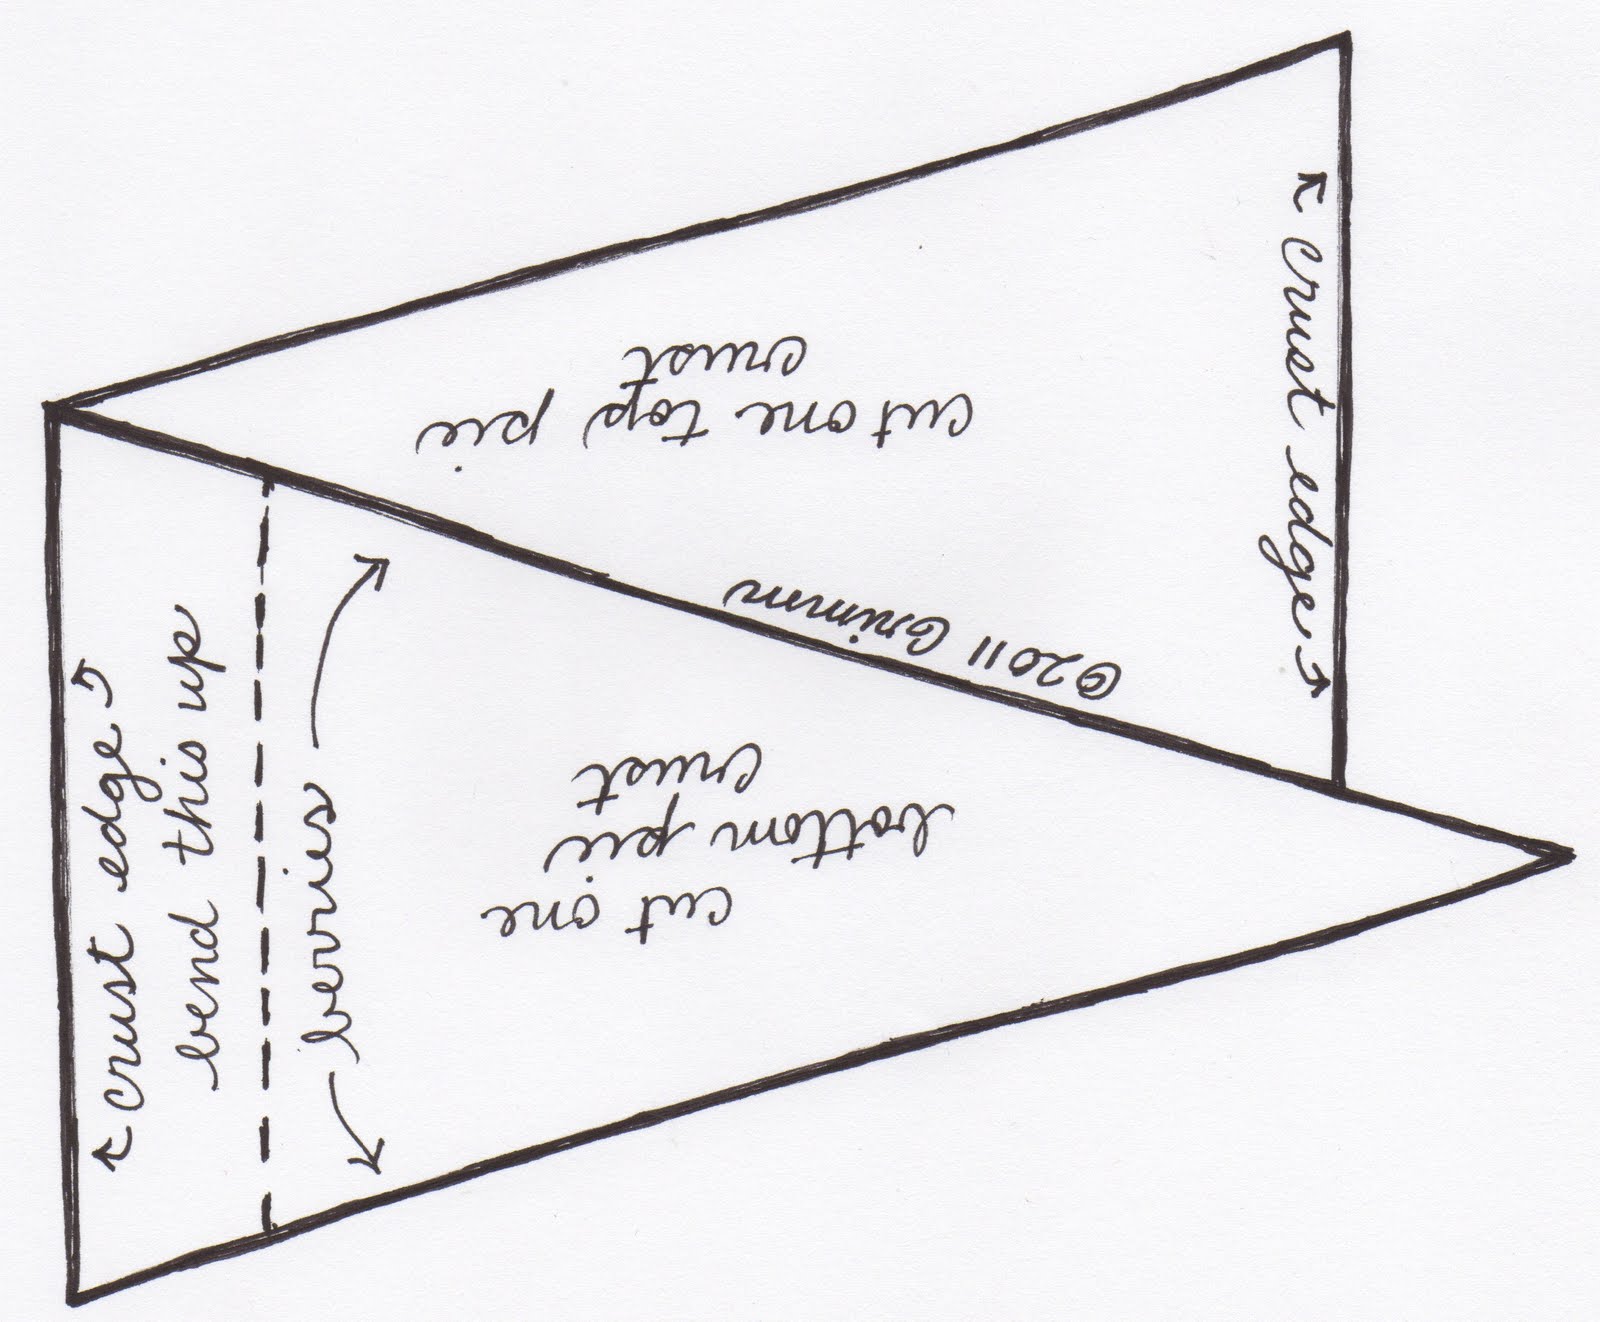 cut one top pie
crust
©2011 Grimm
crust edge
crust edge
bend this up
berries
cut one
bottom pie
crust